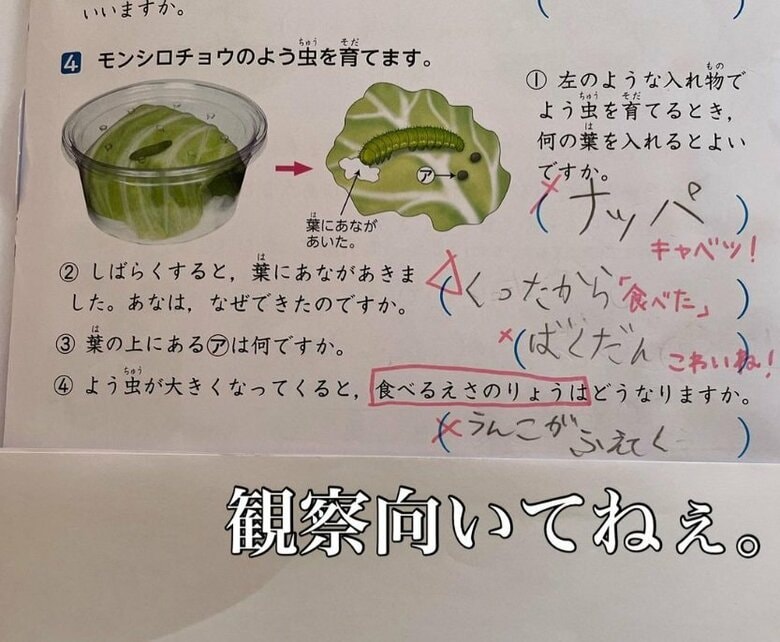 いいますか。
4 モンシロチョウのよう虫を育てます。
ちゅう そだ
① 左のような入れ物で
もの
よう虫を育てるとき，
ちゅう そだ
何の葉を入れるとよい
は
ですか。
(ナッパ)
キャベツ！
㋐
葉にあなが
は
あいた。
② しばらくすると，葉にあながあきま
は
した。あなは，なぜできたのですか。
(くったから「食べた」)
③ 葉の上にある㋐は何ですか。
は
(ばくだん)
こわいね！
④ よう虫が大きくなってくると，食べるえさのりょうはどうなりますか。
ちゅう
(うんこがふえてく)
観察向いてねぇ。